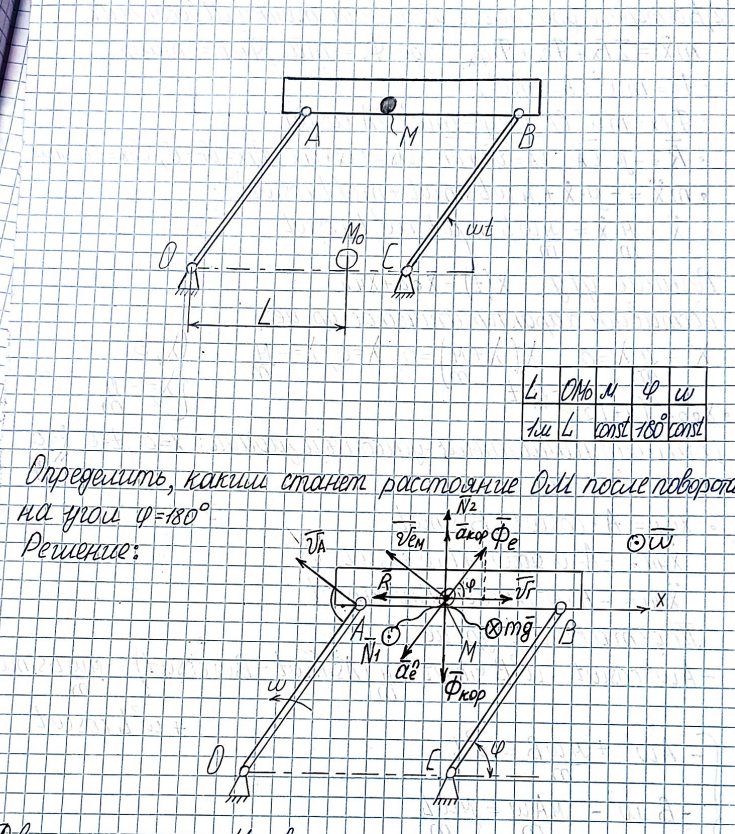 A
M
B
ωt
O
M₀
C
L
L OM₀ м φ ω
1м L const 180° const
Определить, каким станет расстояние ОМ после поворота
на угол φ=180°
Решение:
N₂
v̅A
v̅eм
a̅кор
Ф̅e
ω̅
R̅
φ
v̅r
x
A
N̅₁
mg̅
B
a̅eⁿ
M
Ф̅кор
ω
O
C
φ